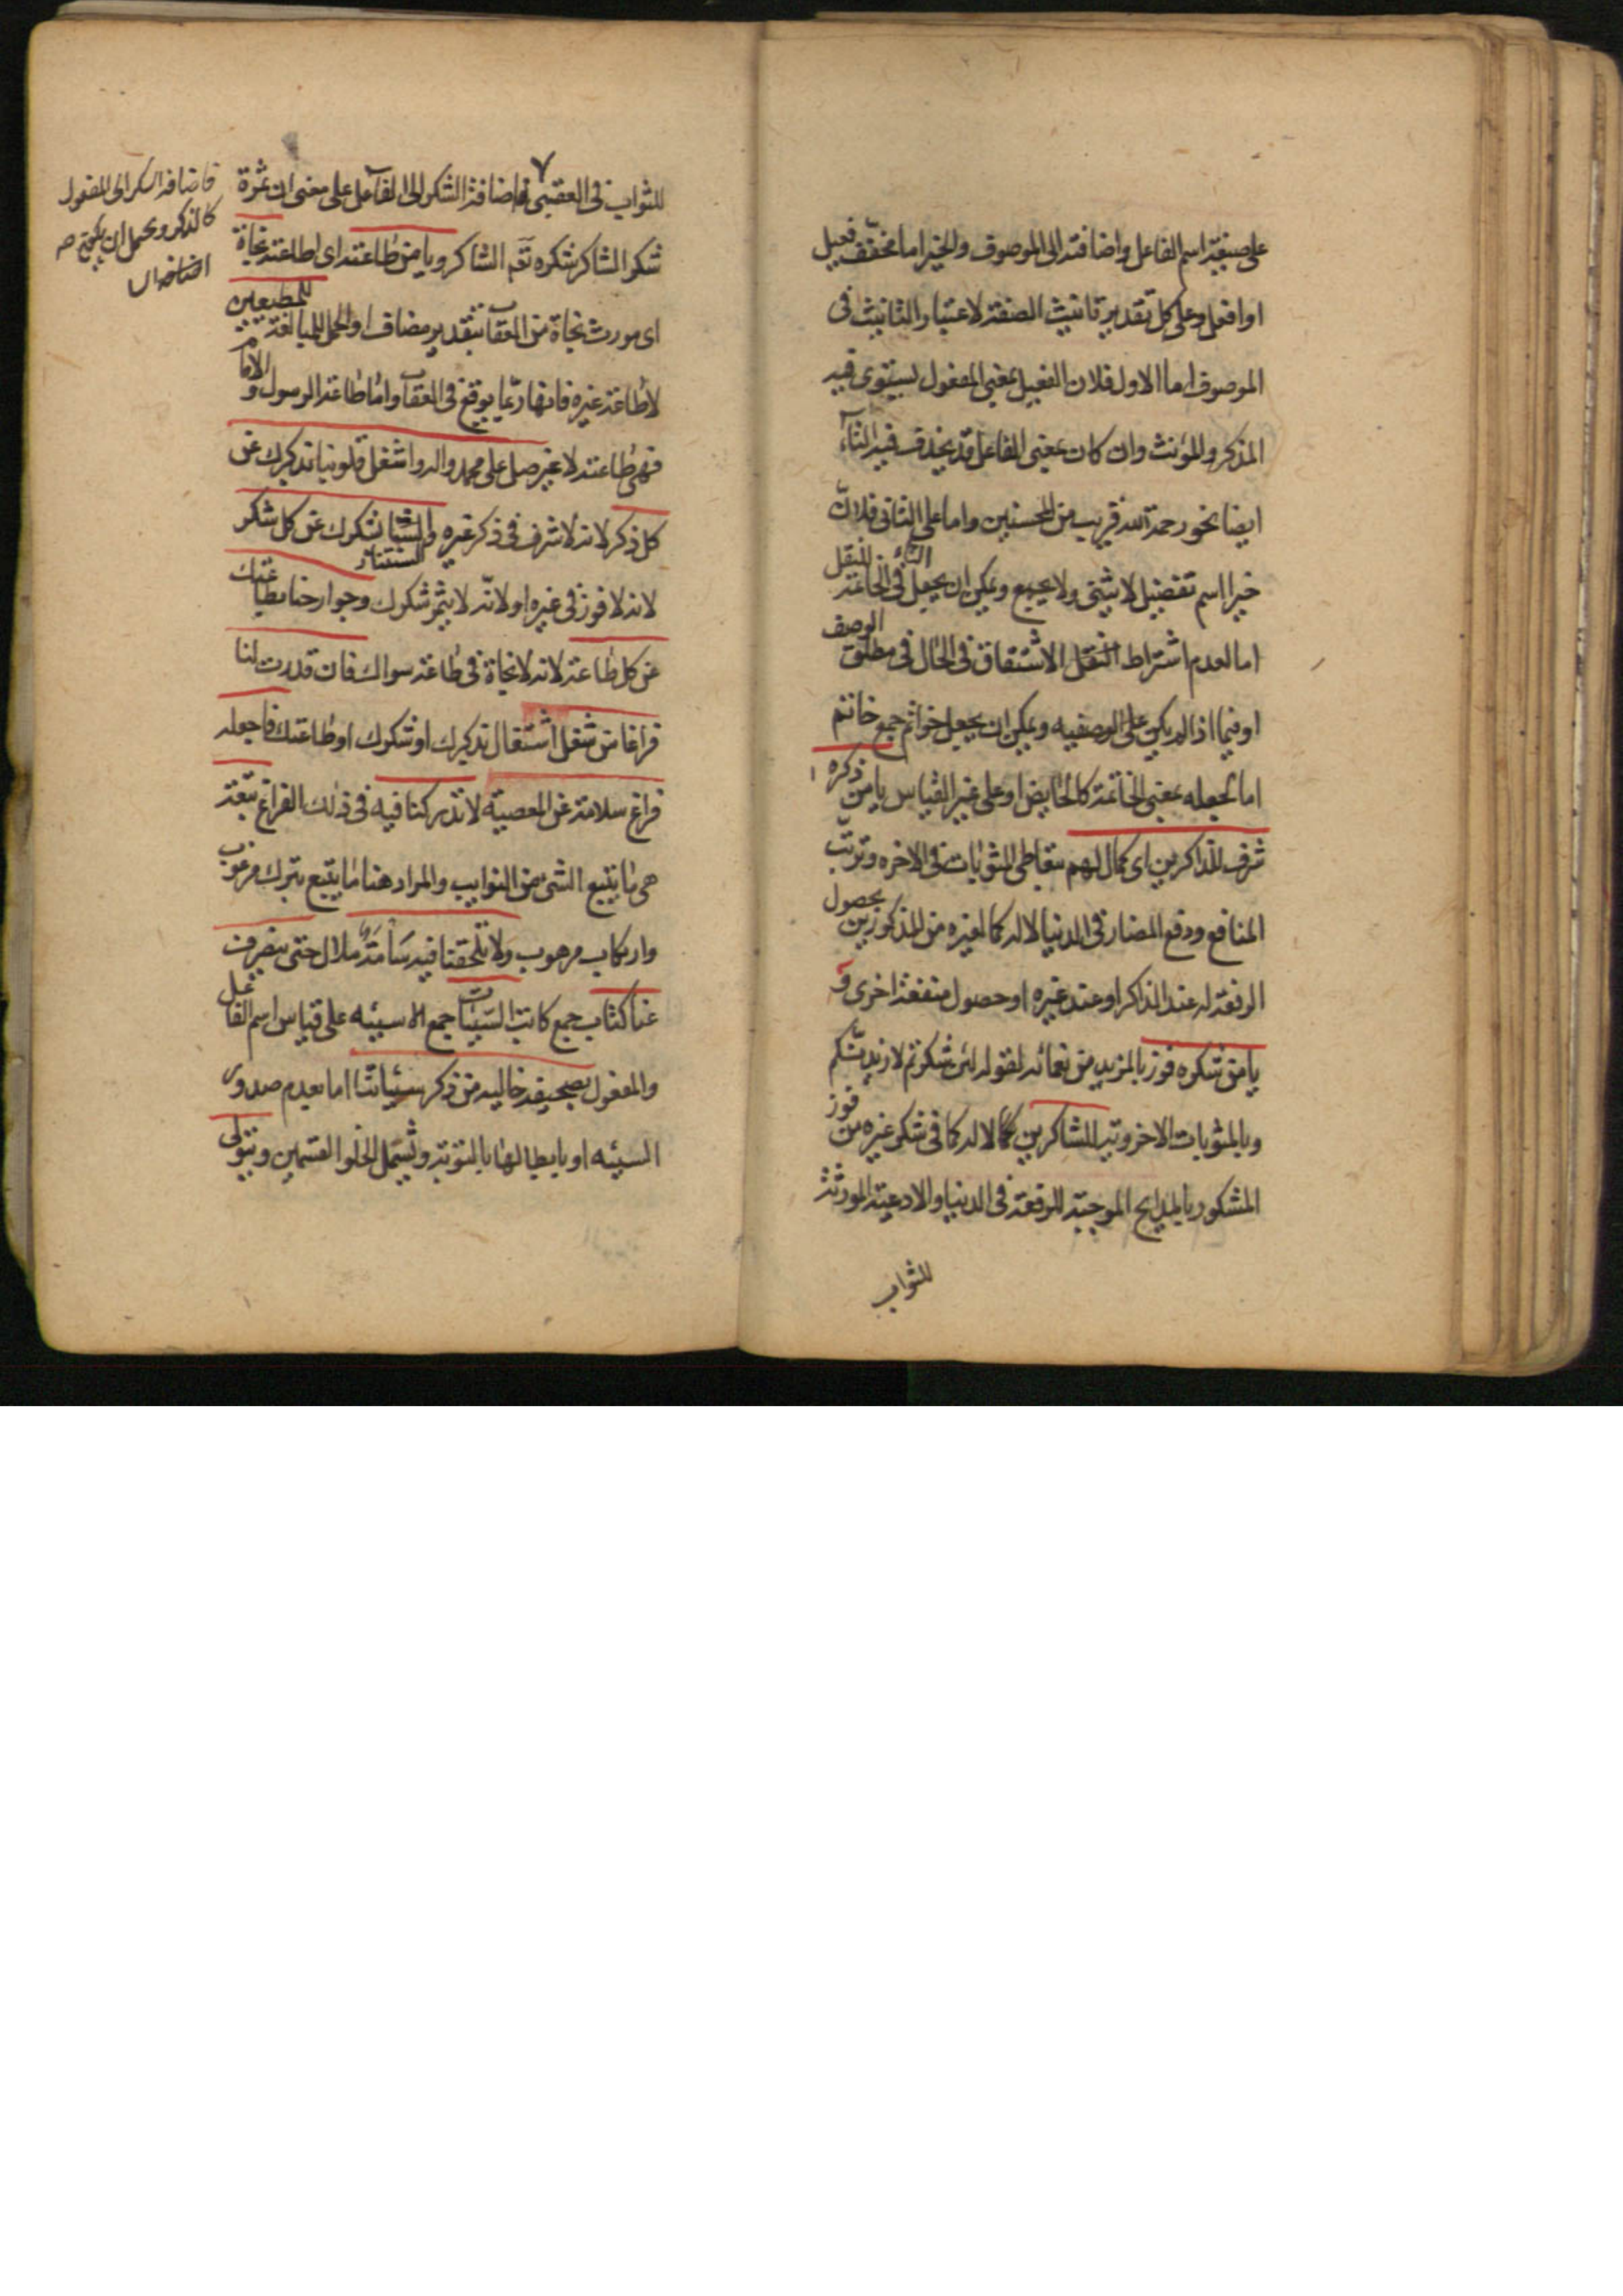 على صيغة اسم الفاعل واضافته الى الموصوف والخير اما مخفّف فعيل
او افعل وعلى كل تقدير تانيث الصفة لاعتبار التانيث فى
الموصوف اما الاول فلان الفعيل بمعنى المفعول يستوى فيه
المذكر والمؤنث وان كان بمعنى الفاعل قد يحذف فيه التآء
ايضا نحو رحمة الله قريب من المحسنين واما على الثانى فلانّ
خيرا اسم تفضيل لا يثنى ولا يجمع ويمكن ان يجعل التاء فى الخاتمة للنقل
اما لعدم اشتراط النقل الاشتقاق فى الحال فى مطلق الوصف
او فيما اذا لم يكن على الوصفيه ويمكن ان يجعل خواتم جمع خاتم
اما لجعله بمعنى الخاتمة كالحايض او على غير القياس يا من ذكره
شرف للذاكرين اى كمال لهم بتعاطى المثوبات فى الاخره وترتّب
المنافع ودفع المضار فى الدنيا لا له كما لغيره من المذكورين بحصول
الرفعة له عند الذاكر او عند غيره او حصول منفعة اخرى و
يا من شكره فوز بالمزيد من نعمائه لقوله لئن شكرتم لازيدنّكم
وبالمثوبات الاخروية للشاكرين لا له كما فى شكر غيره من فوز
المشكور بالمدايح الموجبة للرفعة فى الدنيا والادعية المورثة
للثواب
للثواب فى العقبى فاضافة الشكر الى الفاعل على معنى ان ثمرة
شكر الشاكر شكره نعم الشاكر ويا من طاعته اى اطاعته نجاة
للمطيعين
اى مورث نجاة من العقاب بتقدير مضاف او الحمل للمبالغة
لاطاعة غيره فانها ربّما يوقع فى العقاب واما طاعة الرسول والامام
فهى طاعته لا غير صل على محمد واله واشغل قلوبنا بذكرك عن
كل ذكر لانه لا شرف فى ذكر غيره والسنتنا بشكرك عن كل شكر
السنتنا
لانه لا فوز فى غيره او لانّه لا يثمر شكرك وجوارحنا بطاعتك
عن كل طاعة لانه لا نجاة فى طاعة سواك فان قدرت لنا
فراغا من شغل اشتغال بذكرك او شكرك او طاعتك فاجعله
فراغ سلامة عن المعصية لا تدركنا فيه فى ذلك الفراغ تبعة
هى ما يتبع الشى من النوايب والمراد هنا ما يتبع بترك مرغوب
وارتكاب مرهوب ولا تلحقنا فيه سَأمَة ملال حتى ينصرف
عنا كتّاب جمع كاتب السيئات جمع السيئه على قياس اسم الفاعل
والمفعول بصحيفة خاليه من ذكر سيئاتنا اما بعدم صدور
السيئه او بابطالها بالتوبة ويشمل الخلو القسمين ويتولى
فاضافة الشكر الى المفعول
كالذكر ويحتمل ان